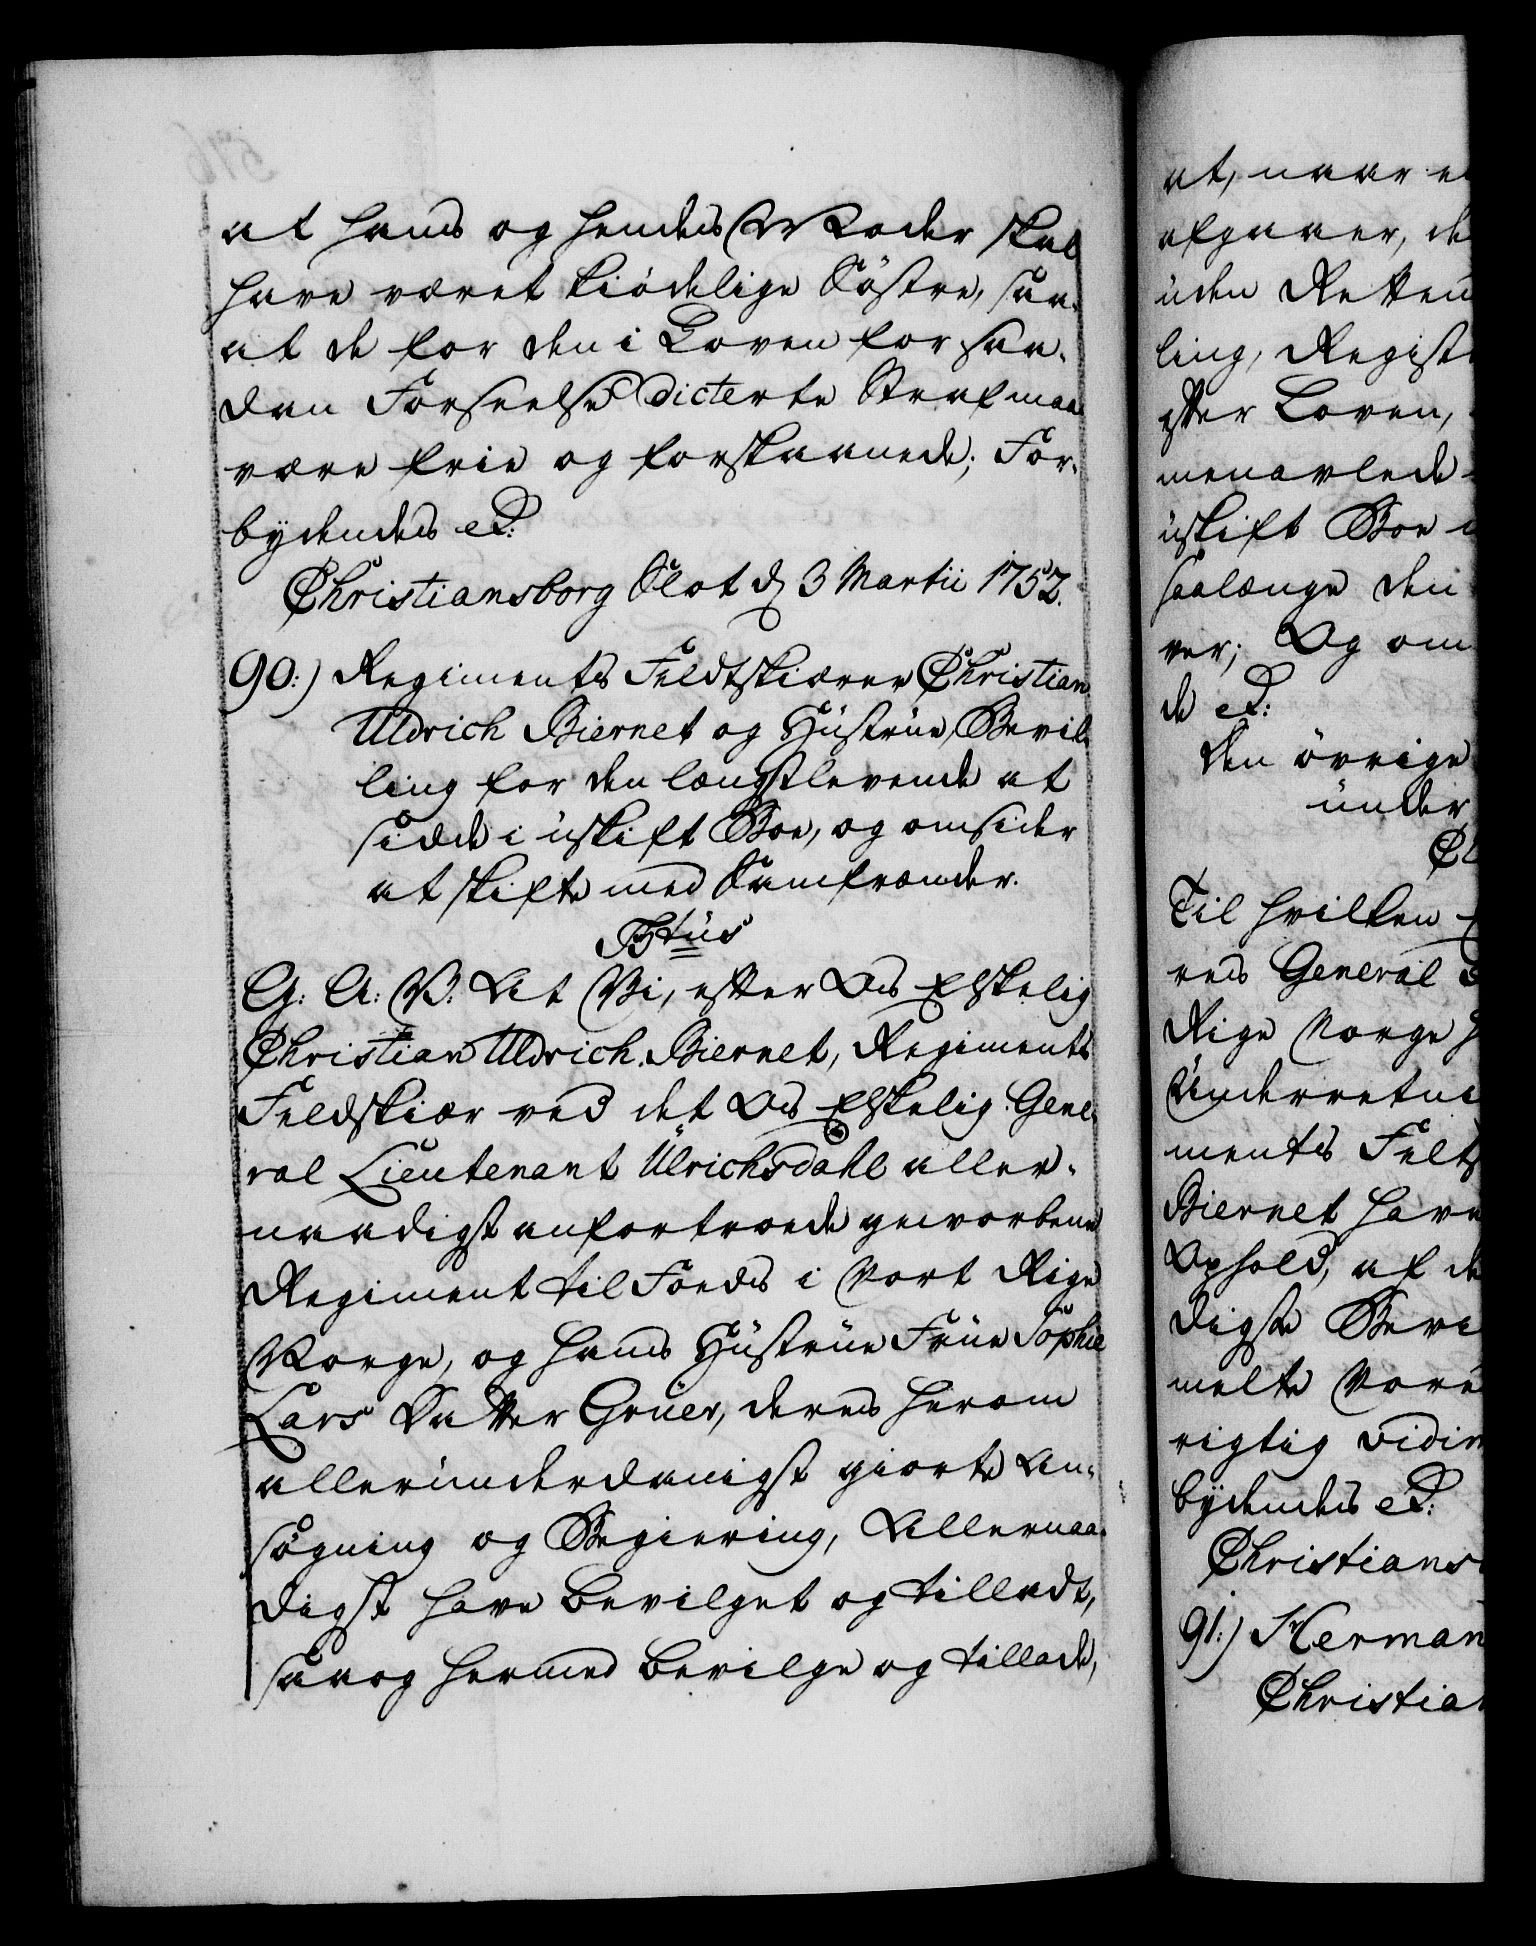 at hans og hendes Moder skal
have været kiödelige Söstre, saa-
at de for den i Loven for saa-
dan Forseelse dicterte Straf maa
være frie og forskaanede; For-
bydendes etc:
Christiansborg Slot d 3 Martii 1752.
90:) Regiments Feldtskiærer Christian
Uldrich Biernet og Hüstrüe, Bevil-
ling for den længstlevende at
sidde i üskift Boe, og omsider
at skifte med Samfrænder.
G: A: V: At Vi, efter Os Elskelig
Christian Uldrich Biernet, Regiments
Feldskiær ved det Os Elskelig Gene-
ral Lieutenant Ülrichsdahl aller-
naadigst anfortroede gevorbene
Regiment til Foeds i Vort Rige
Norge, og hans Hüstrüe Früe Sophie
Lars Datter Grüer, deres herom
alleründerdanigst giorte An-
sögning og Begiering, Allernaa-
digst have bevilget og tilladt,
saa og hermed bevilge og tillade,
at, naar e
afgaaer, de
üden Retten
ling, Regist
efter Loven,
menavlede
üskift Boe
saalænge den
ver; Og om
de etc:
den övrige
ünder
Til hvilken
res General
Rige Norge
Ünderretni
ments Felts
Biernet have
Ophold, af de
digste Bevi
melte Vore
rigtig vidim
bydendes etc:
Christians
91:) Herman
Christian